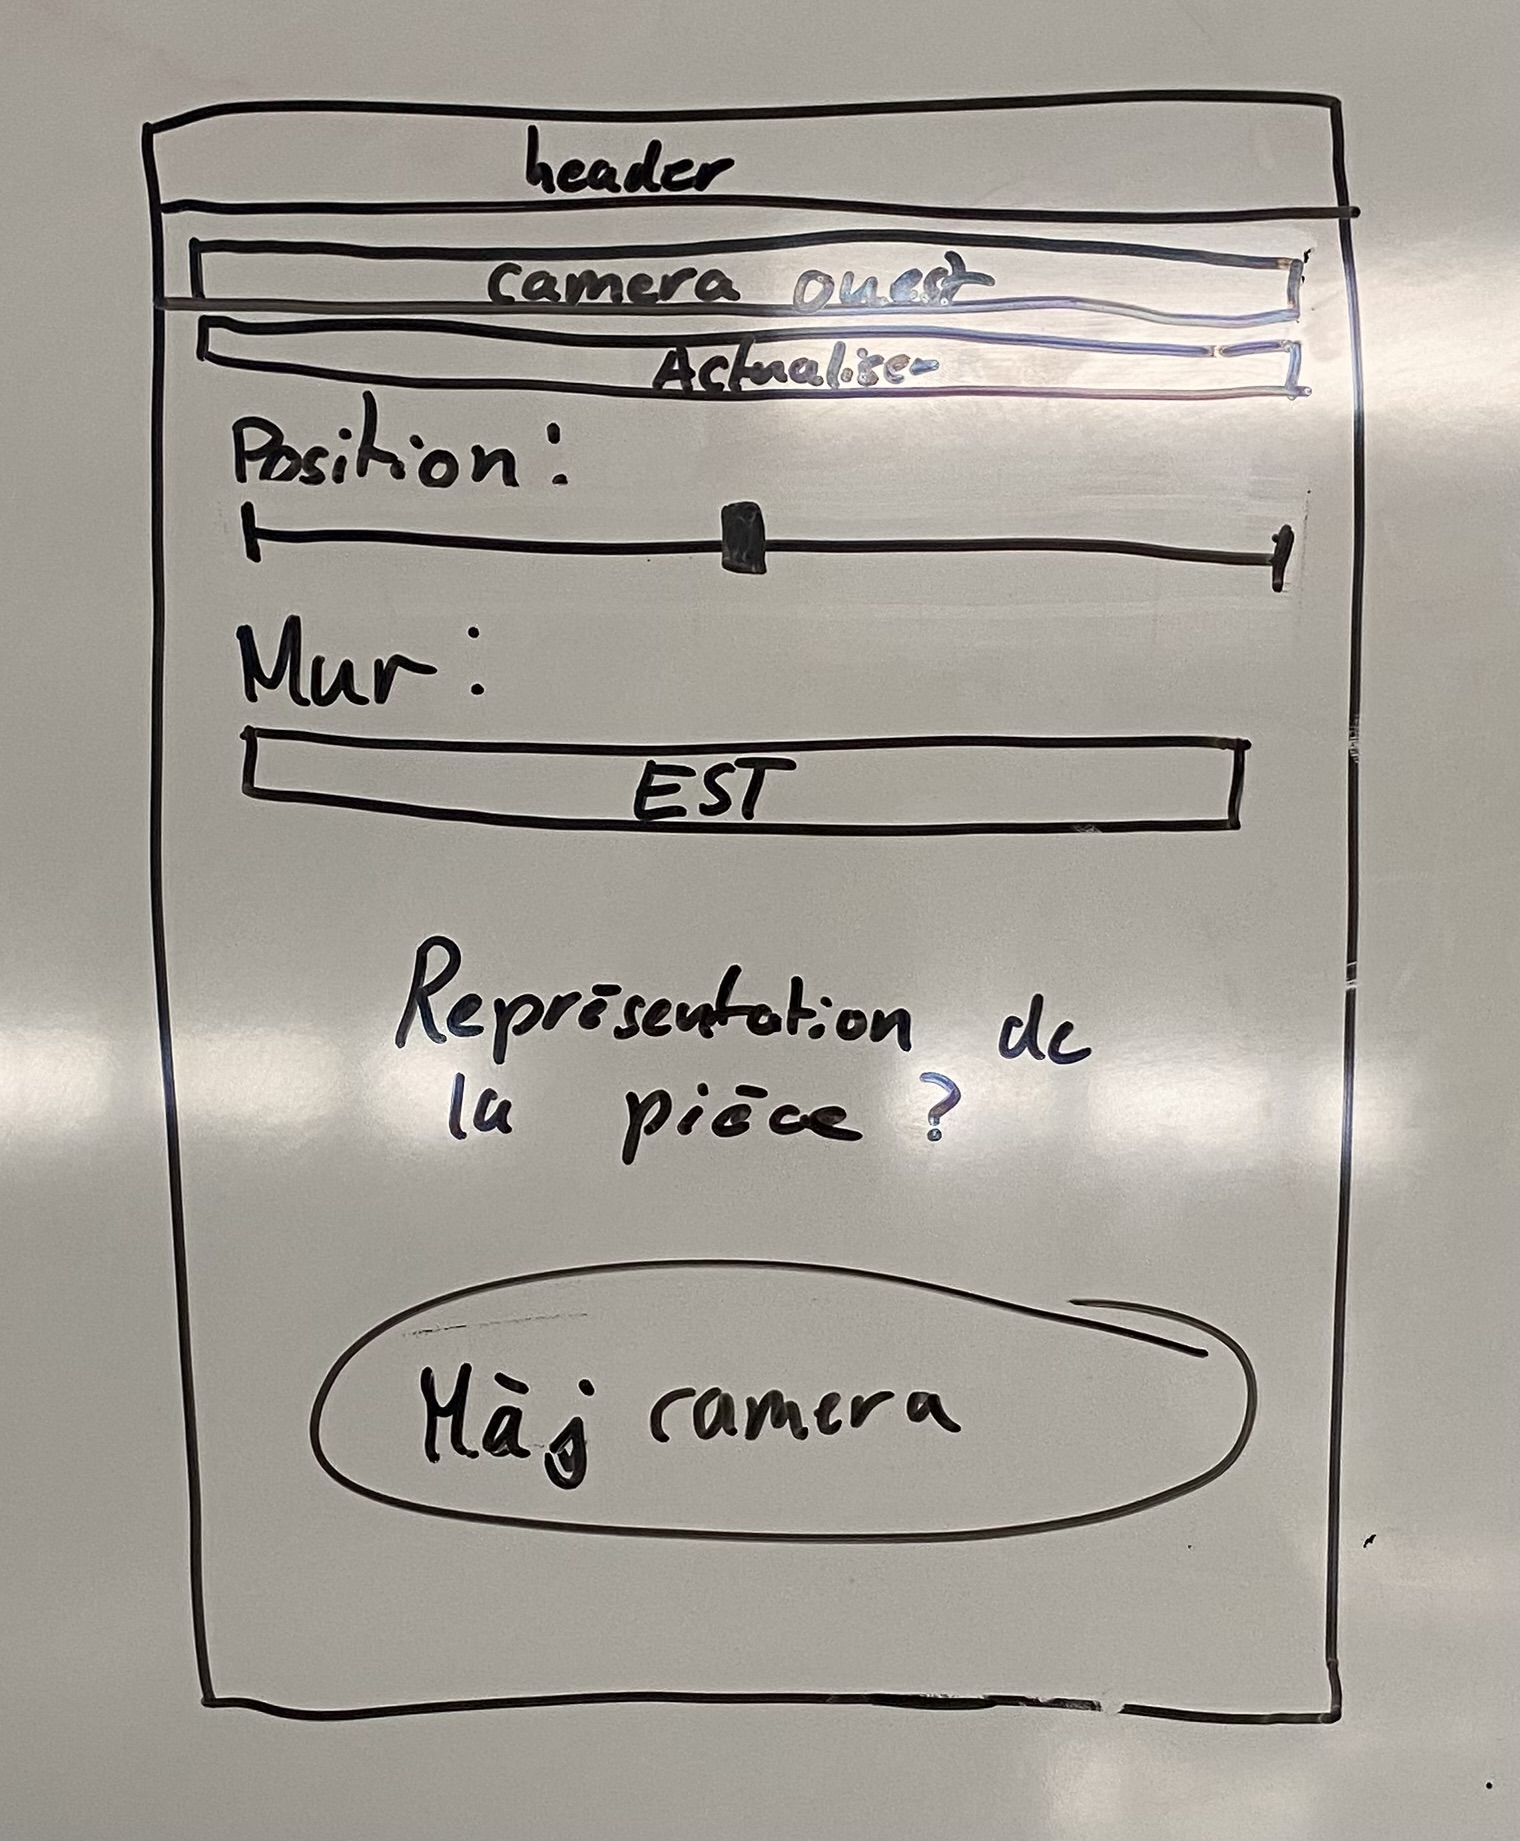 header
camera ouest
Actualiser
Position :
Mur :
EST
Représentation de
la pièce ?
Màj camera